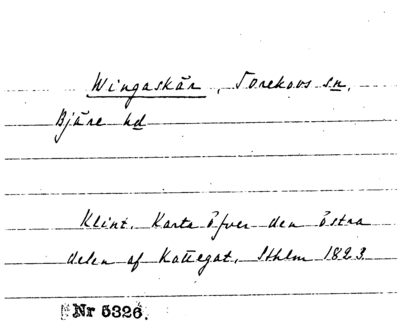 Wingaskär, Torekovs sn,
Bjäre hd
Klint, Karta öfver den östra
delen af Kattegat, Sthlm 1823
Nr 5326.